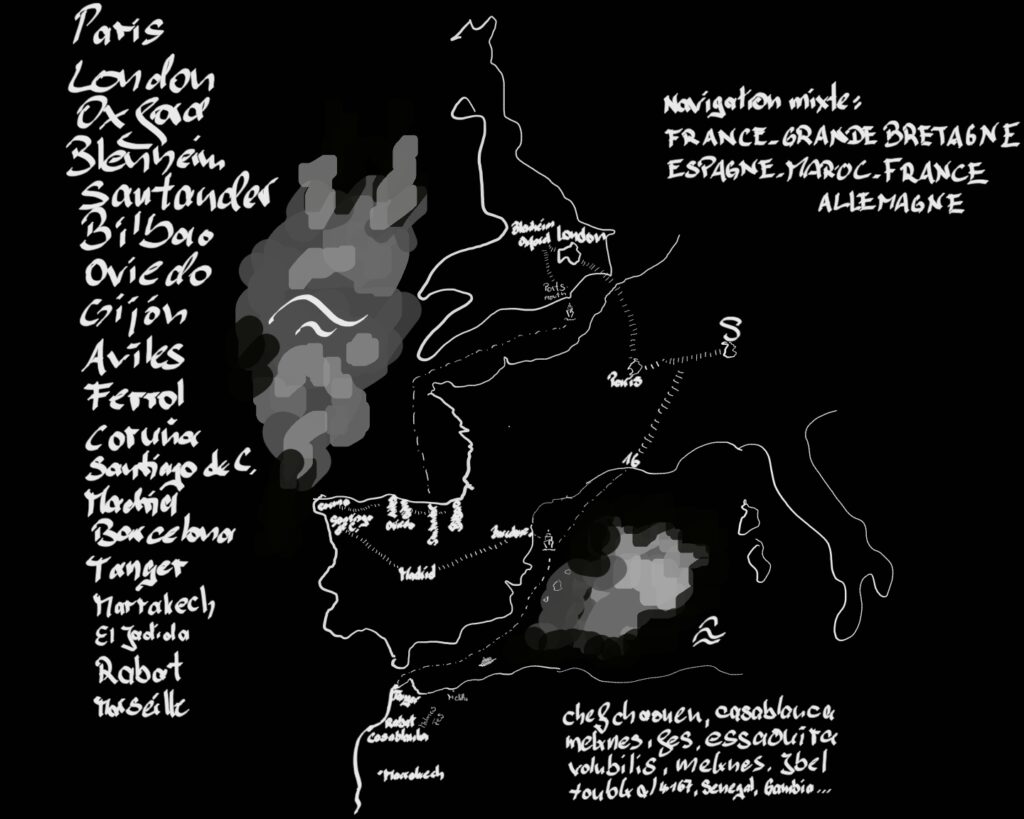 Paris
London
Oxford
Blenheim
Santander
Bilbao
Oviedo
Gijón
Aviles
Ferrol
Coruña
Santiago de C.
Madrid
Barcelona
Tanger
Marrakech
El Jadida
Rabat
Marseille
Navigation mixte:
FRANCE-GRANDE BRETAGNE
ESPAGNE-MAROC-FRANCE
ALLEMAGNE
Blenheim
Oxford
London
Ports
mouth
S
Paris
16
Coruna
Santiago
Oviedo
Madrid
Tanger
Rabat
Casablanca
Meknes
Fes
Marrakech
chefchaouen, casablanca
meknes, fes, essaouira
volubilis, meknes, Jbel
toubkal 4167, Senegal, Gambia...